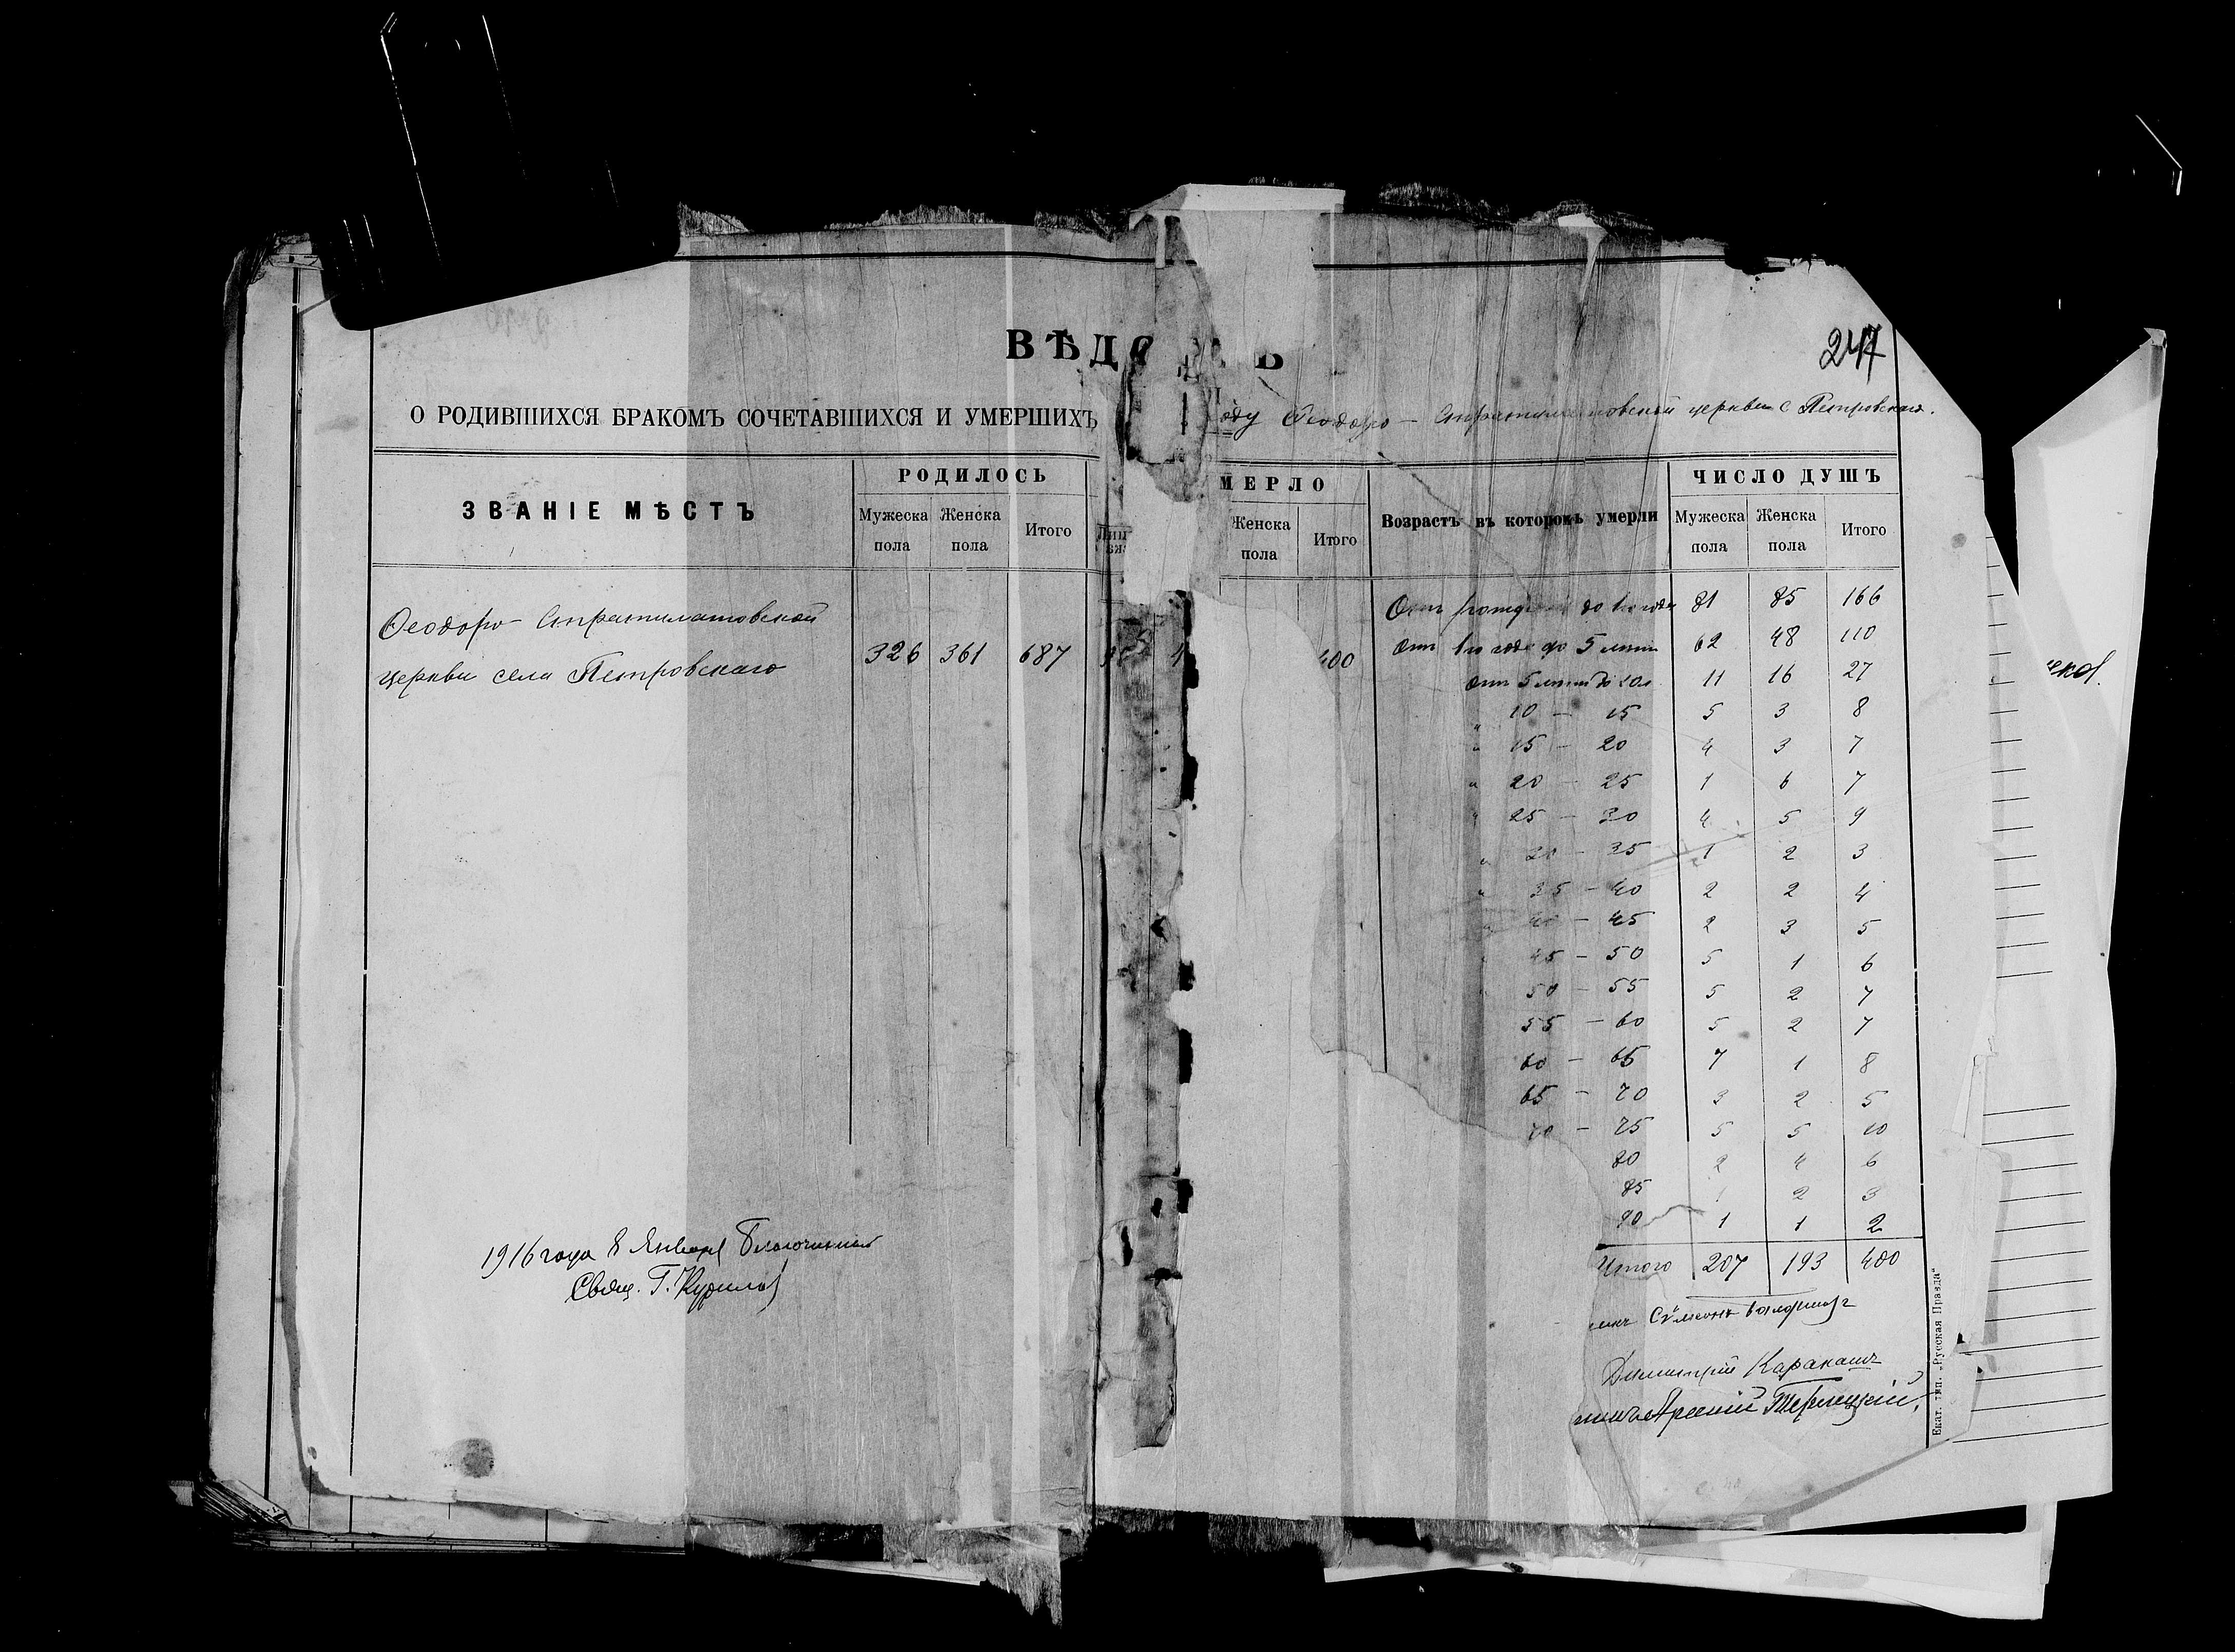 247
ВѢДО Ь
О РОДИВШИХСЯ БРАКОМЪ СОЧЕТАВШИХСЯ И УМЕРШИХЪ оду Ѳеодоро - Стратилатовской церкви с Петровскаго.
ЗВАНІЕ МѢСТЪ
РОДИЛОСЬ
Мужеска пола
Женска пола
Итого
МЕРЛО
Женска пола
Итого
Возрастъ въ которомъ умерли
ЧИСЛО ДУШЪ
Мужеска пола
Женска пола
Итого
Ѳеодоро - Стратилатовской
церкви села Петровскаго
326 361 687
400
Отъ до 1го года 81 85 166
Отъ 1го года до 5 лѣтъ 62 48 110
Отъ 5 лѣтъ до 10 11 16 27
" 10 - 15 5 3 8
" 15 - 20 4 3 7
" 20 - 25 1 6 7
" 25 - 30 4 5 9
" 30 - 35 1 2 3
" 35 - 40 2 2 4
" 40 - 45 2 3 5
45 - 50 5 1 6
50 - 55 5 2 7
55 - 60 5 2 7
60 - 65 7 1 8
65 - 70 3 2 5
70 - 75 5 5 10
80 2 4 6
85 1 2 3
90 1 1 2
Итого 207 193 400
1916 года 8 Января Благочинный
Свящ. Г. Курилов
Сѵмеонъ
Димитрій Каракашъ
Арсеній Терлецкій.
Екат. тип. „Русская Правда"